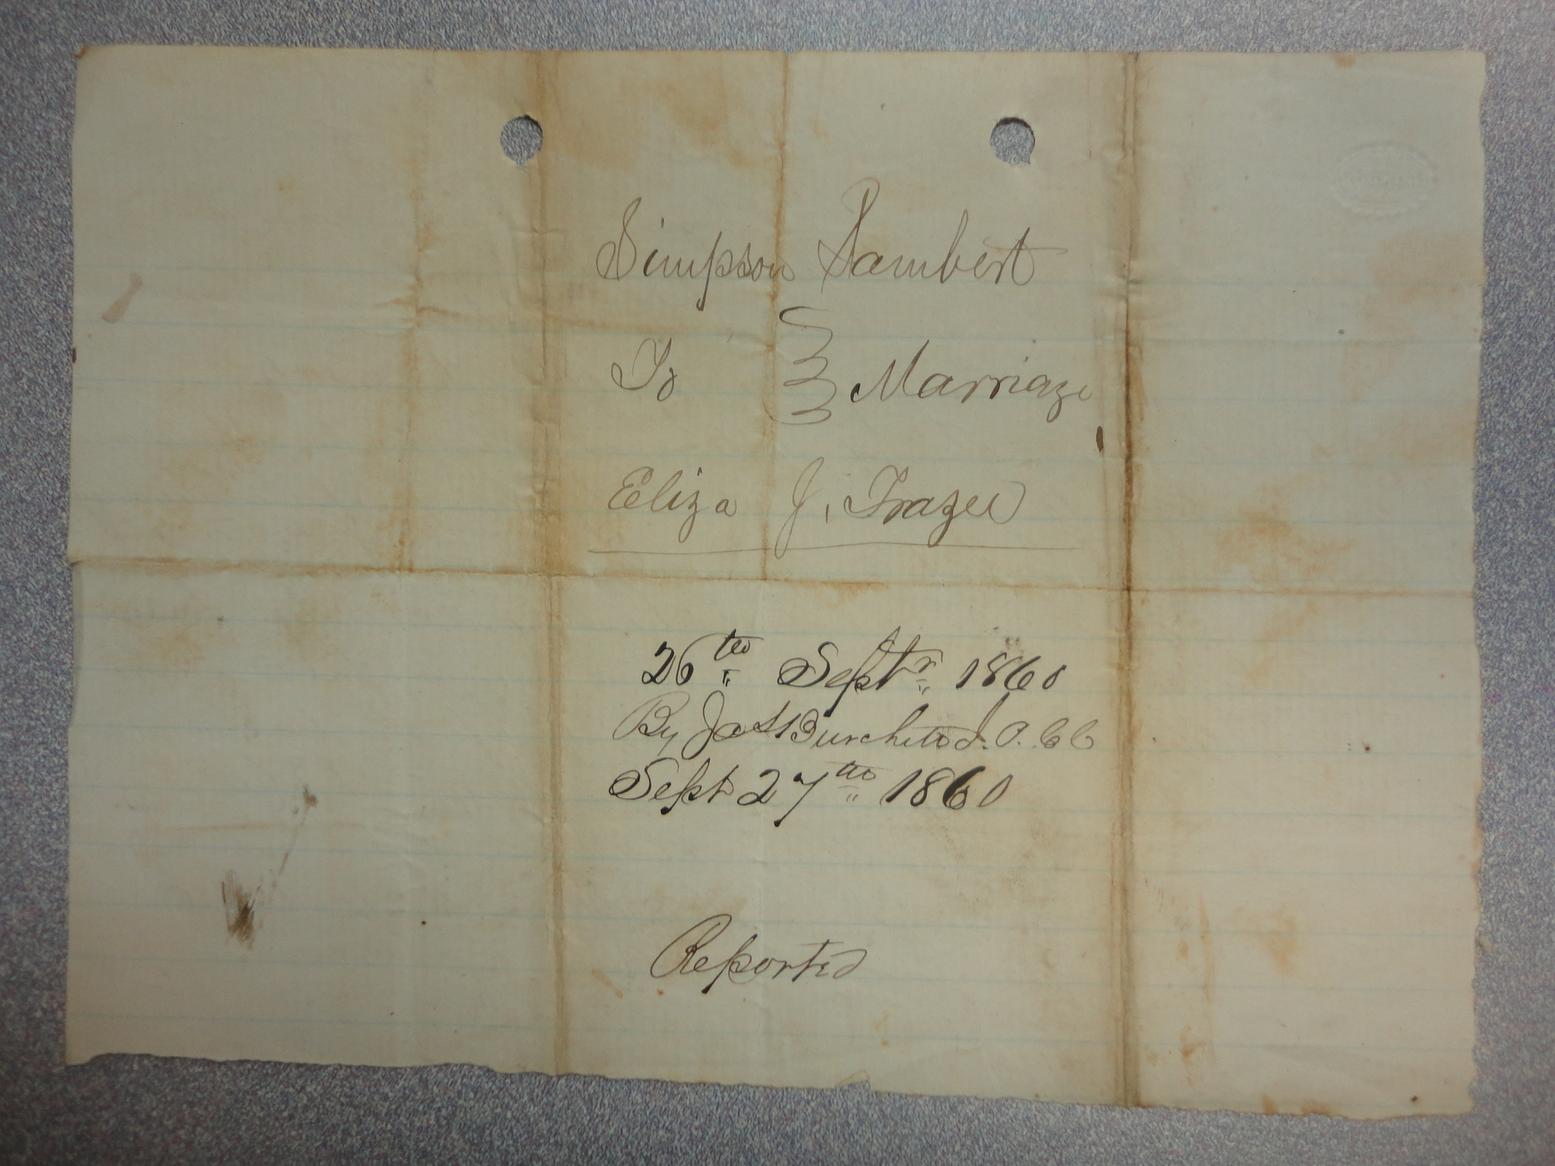 Simpson Lambert
To } Marriage
Eliza J. Frazee
26th Septr 1860
By Jas Burchett J. P. C C
Sept 27th 1860
Reported